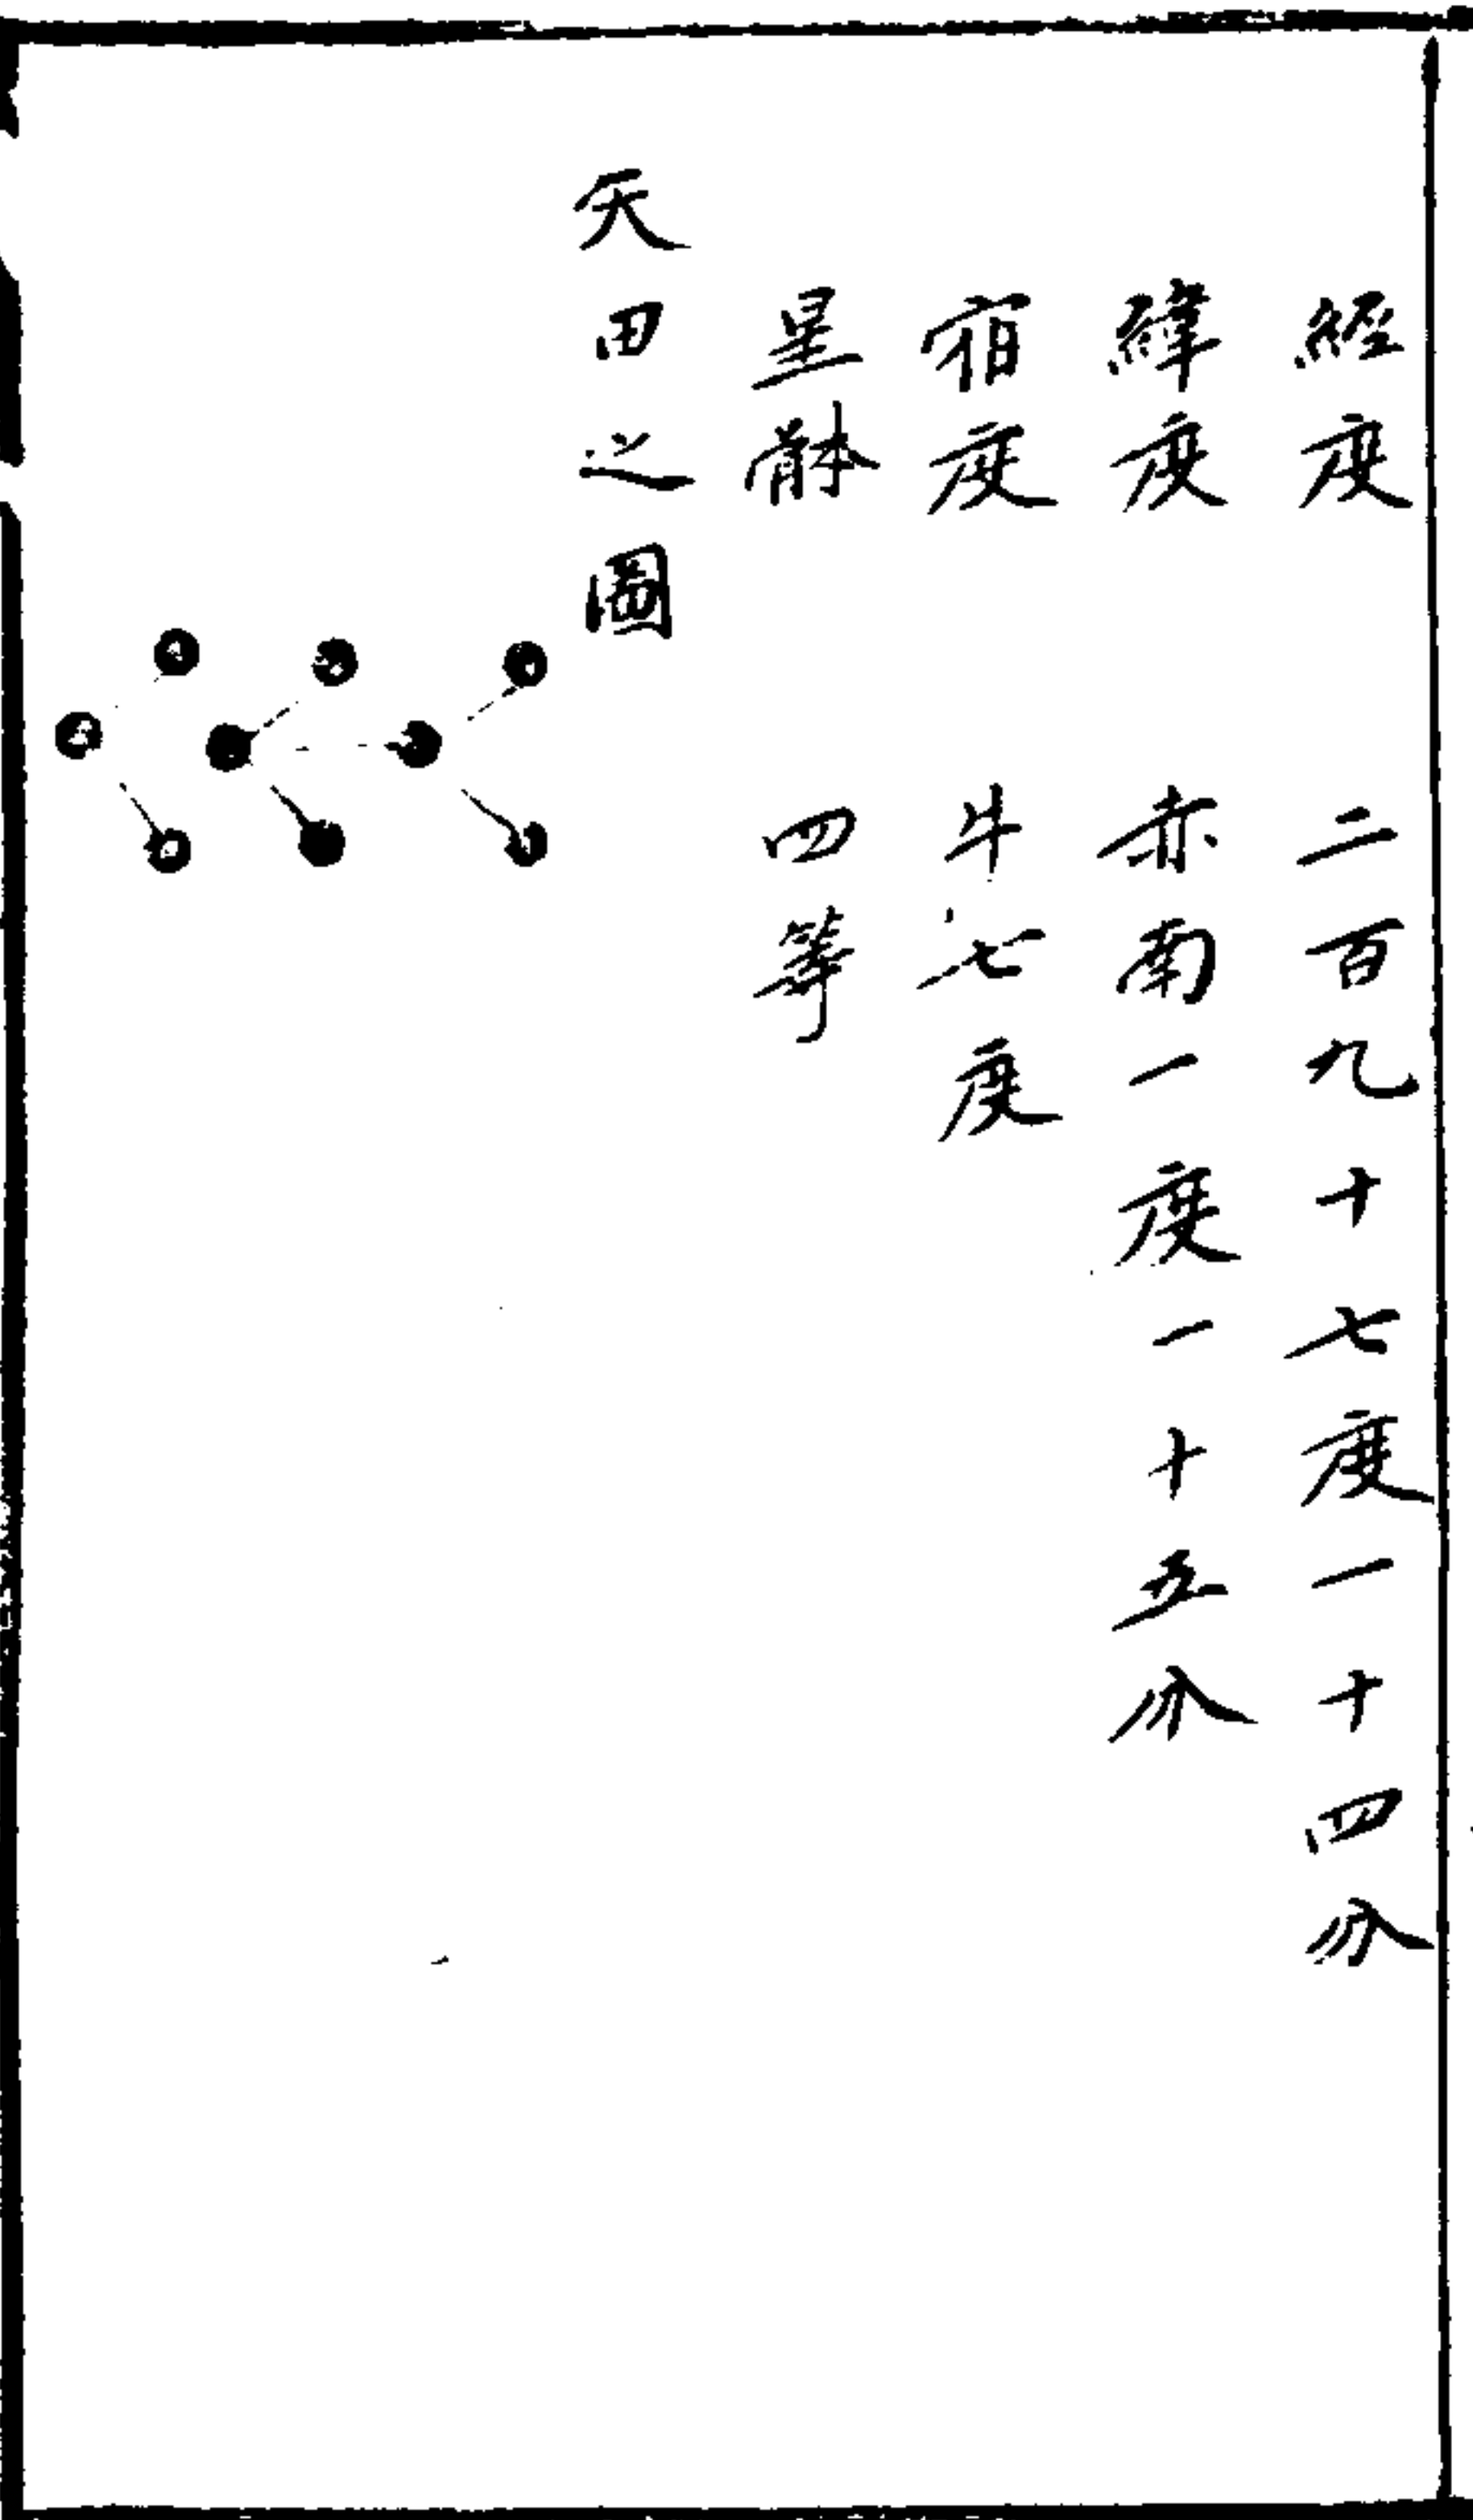 經度 二百九十七度一十四分
緯度 赤南一度一十五分
宿度 牛七度
星體 四等
天田之圖